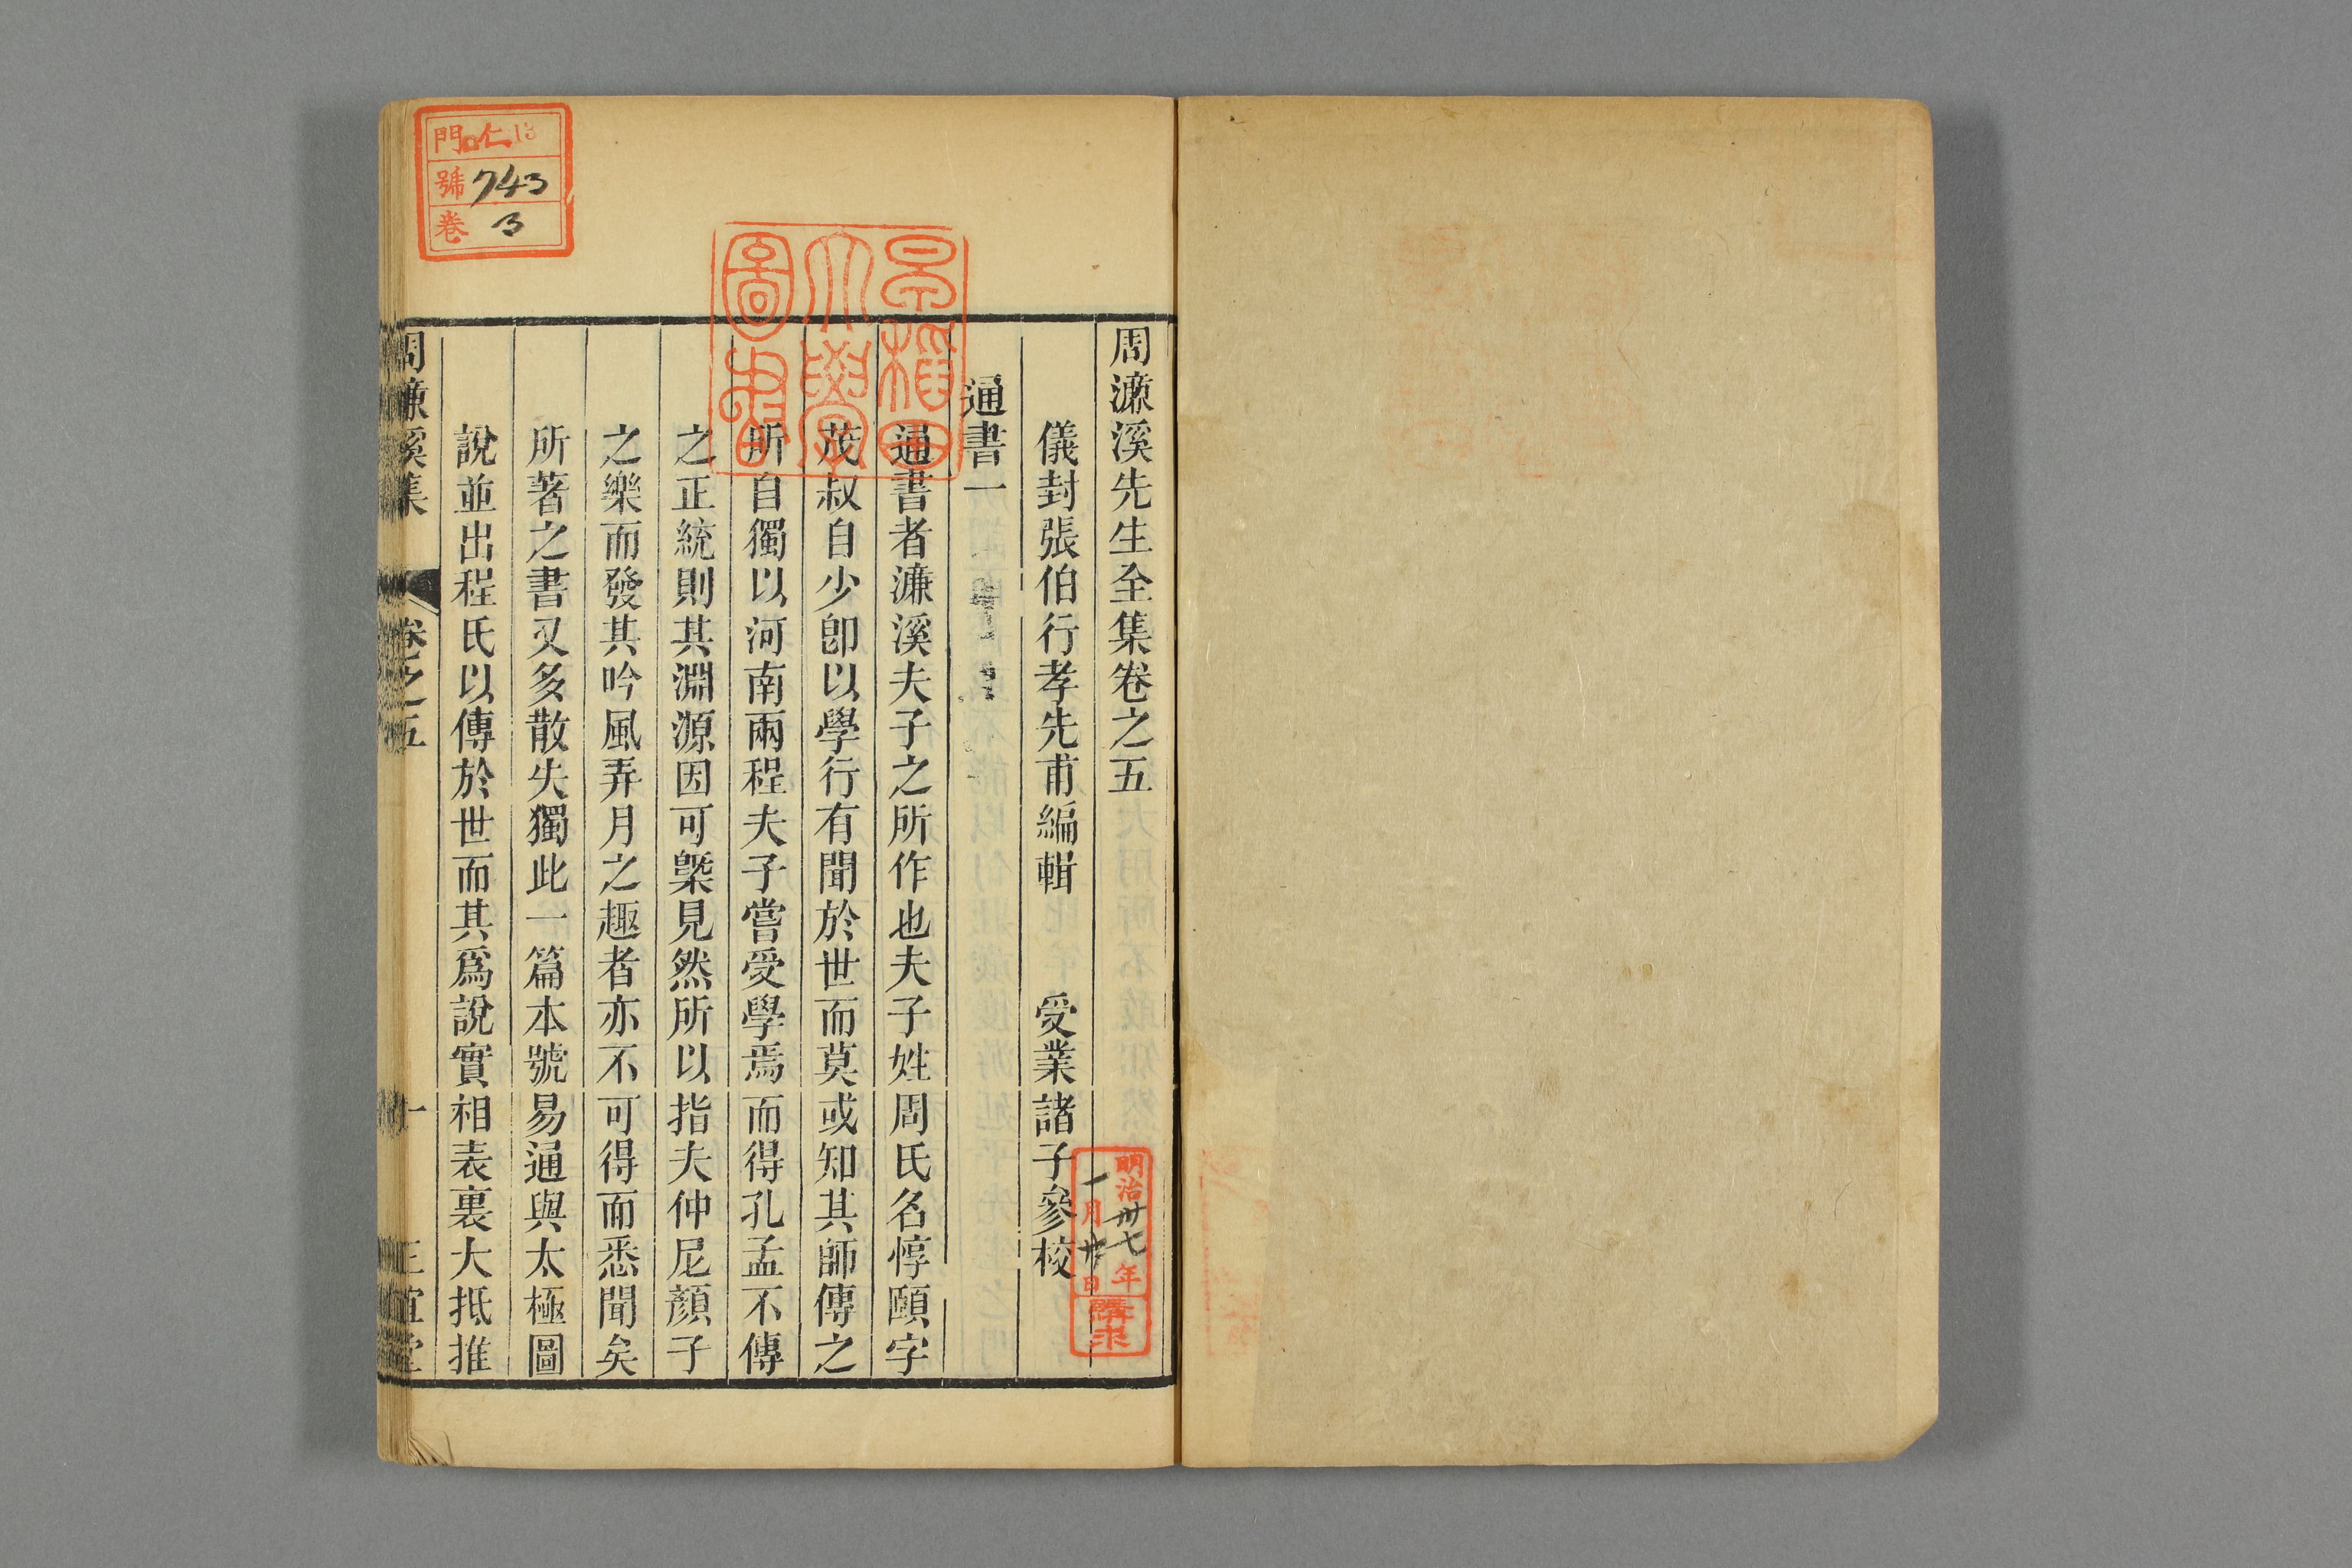 周濂溪先生全集卷之五
儀封張伯行孝先甫編輯　受業諸子參校
通書一
通書者濂溪夫子之所作也夫子姓周氏名惇頤字
茂叔自少卽以學行有聞於世而莫或知其師傳之
所自獨以河南兩程夫子嘗受學焉而得孔孟不傳
之正統則其淵源因可槩見然所以指夫仲尼顏子
之樂而發其吟風弄月之趣者亦不可得而悉聞矣
所著之書又多散失獨此一篇本號易通與太極圖
說並出程氏以傳於世而其爲說實相表裏大抵推
周濂溪集　卷之五　一　正誼堂
門 仁 13
號 743
卷 3
早稲田
大學
圖書
明治卅七年
一月廿日
購求